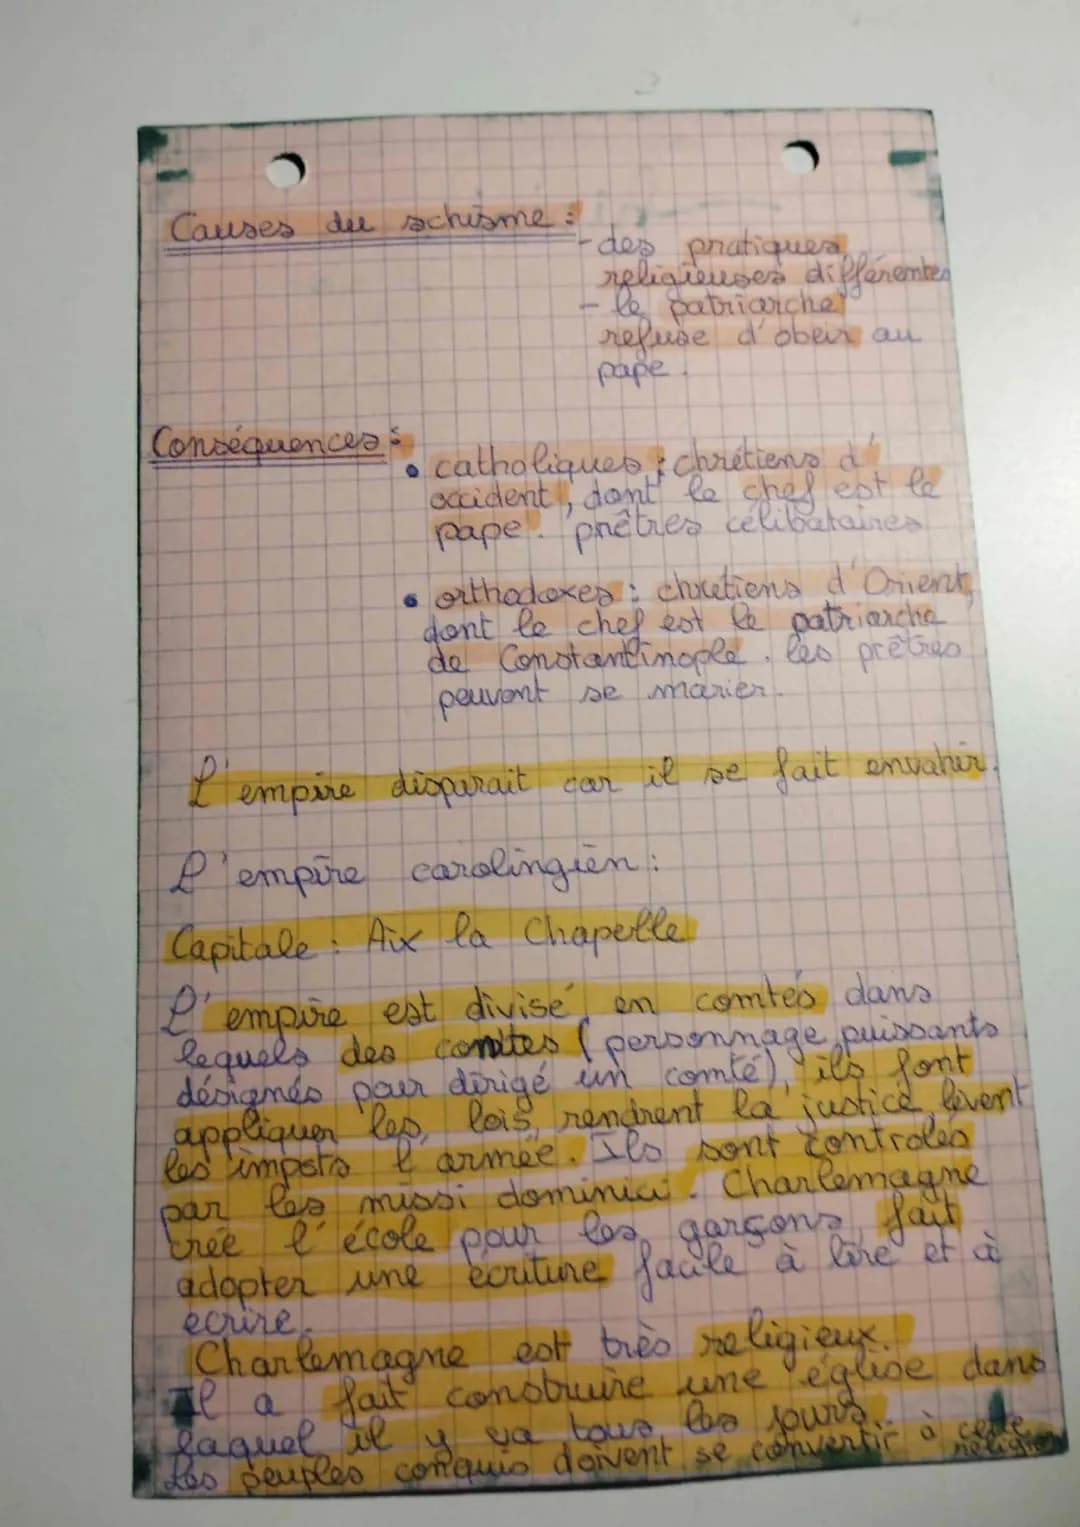 Causes du schisme :
- des pratiques
religieuses différentes
- le patriarche
refuse d'obeir au
pape.
Conséquences :
• catholiques : chrétiens d'
occident, dont le chef est le
pape. prêtres célibataires
• orthodoxes : chretiens d'Orient,
dont le chef est le patriarche
de Constantinople. les prêtres
peuvent se marier.
L'empire disparait car il se fait envahir.
L'empire carolingien :
Capitale : Aix la Chapelle
L'empire est divisé en comtés dans
lequels des comtes (personnage puissants
désignés pour dirigé un comté), ils font
appliquer les lois, rendrent la justice, lèvent
les impots l'armée. Ils sont controlés
par les missi dominici. Charlemagne
crée l'école pour les garçons, fait
adopter une écriture facile à lire et à
ecrire.
Charlemagne est très religieux.
Il a fait construire une église dans
laquel il y va tous les jours.
Les peuples conquis doivent se convertir à cette
religion